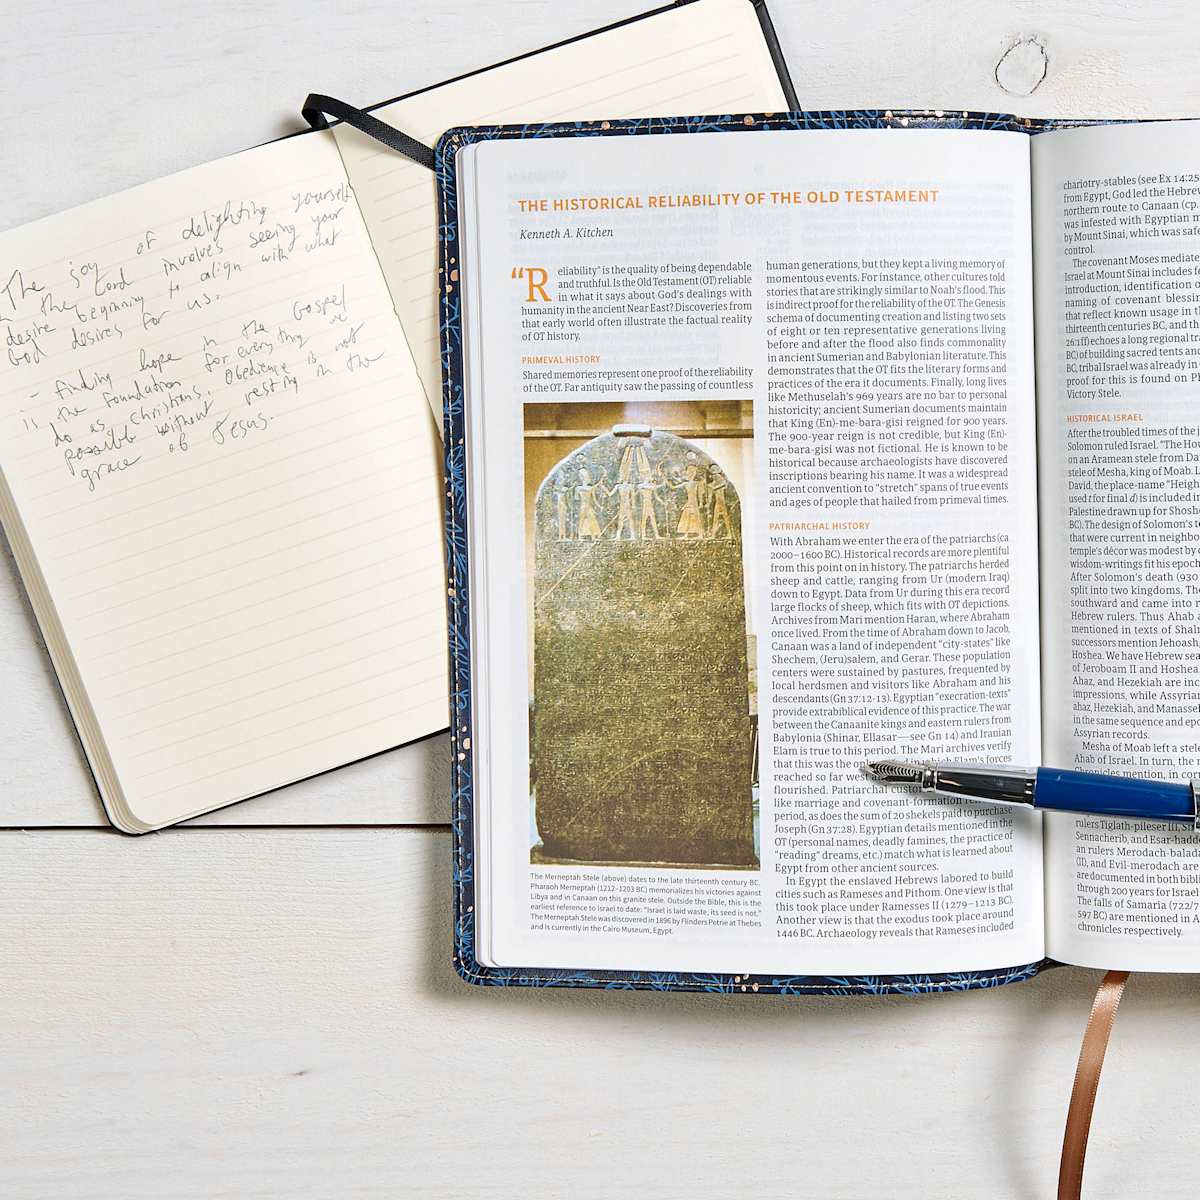 The joy of delighting yourself
in the Lord involves seeing your
desire beginning to align with what
God desires for us.
:- Finding hope in the Gospel
is the foundation for everything we
do as christians. Obedience is not
possible without resting in the
grace of Jesus.
THE HISTORICAL RELIABILITY OF THE OLD TESTAMENT
Kenneth A. Kitchen
“Reliability” is the quality of being dependable
and truthful. Is the Old Testament (OT) reliable
in what it says about God's dealings with
humanity in the ancient Near East? Discoveries from
that early world often illustrate the factual reality
of OT history.
PRIMEVAL HISTORY
Shared memories represent one proof of the reliability
of the OT. Far antiquity saw the passing of countless
The Merneptah Stele (above) dates to the late thirteenth century BC.
Pharaoh Merneptah (1212–1203 BC) memorializes his victories against
Libya and in Canaan on this granite stele. Outside the Bible, this is the
earliest reference to Israel to date: "Israel is laid waste, its seed is not."
The Merneptah Stele was discovered in 1896 by Flinders Petrie at Thebes
and is currently in the Cairo Museum, Egypt.
human generations, but they kept a living memory of
momentous events. For instance, other cultures told
stories that are strikingly similar to Noah's flood. This
is indirect proof for the reliability of the OT. The Genesis
schema of documenting creation and listing two sets
of eight or ten representative generations living
before and after the flood also finds commonality
in ancient Sumerian and Babylonian literature. This
demonstrates that the OT fits the literary forms and
practices of the era it documents. Finally, long lives
like Methuselah's 969 years are no bar to personal
historicity; ancient Sumerian documents maintain
that King (En)-me-bara-gisi reigned for 900 years.
The 900-year reign is not credible, but King (En)-
me-bara-gisi was not fictional. He is known to be
historical because archaeologists have discovered
inscriptions bearing his name. It was a widespread
ancient convention to "stretch" spans of true events
and ages of people that hailed from primeval times.
PATRIARCHAL HISTORY
With Abraham we enter the era of the patriarchs (ca
2000–1600 BC). Historical records are more plentiful
from this point on in history. The patriarchs herded
sheep and cattle, ranging from Ur (modern Iraq)
down to Egypt. Data from Ur during this era record
large flocks of sheep, which fits with OT depictions.
Archives from Mari mention Haran, where Abraham
once lived. From the time of Abraham down to Jacob,
Canaan was a land of independent "city-states" like
Shechem, (Jeru)salem, and Gerar. These population
centers were sustained by pastures, frequented by
local herdsmen and visitors like Abraham and his
descendants (Gn 37:12-13). Egyptian "execration-texts"
provide extrabiblical evidence of this practice. The war
between the Canaanite kings and eastern rulers from
Babylonia (Shinar, Ellasar—see Gn 14) and Iranian
Elam is true to this period. The Mari archives verify
that this was the only in which Elam's forces
reached so far west
flourished. Patriarchal
like marriage and covenant-formation
period, as does the sum of 20 shekels paid to purchase
Joseph (Gn 37:28). Egyptian details mentioned in the
OT (personal names, deadly famines, the practice of
"reading" dreams, etc.) match what is learned about
Egypt from other ancient sources.
In Egypt the enslaved Hebrews labored to build
cities such as Rameses and Pithom. One view is that
this took place under Ramesses II (1279–1213 BC).
Another view is that the exodus took place around
1446 BC. Archaeology reveals that Rameses included
chariotry-stables (see Ex 14:25
from Egypt, God led the Hebrew
northern route to Canaan (cp.
was infested with Egyptian m
by Mount Sinai, which was safe
control.
The covenant Moses mediate
Israel at Mount Sinai includes fe
introduction, identification o
naming of covenant blessin
that reflect known usage in th
thirteenth centuries BC, and th
26:1ff) echoes a long regional tra
BC) of building sacred tents and
BC, tribal Israel was already in
proof for this is found on Ph
Victory Stele.
HISTORICAL ISRAEL
After the troubled times of the j
Solomon ruled Israel. "The Hou
on an Aramean stele from Da
stele of Mesha, king of Moab. L
David, the place-name "Heigh
used t for final d) is included in
Palestine drawn up for Shosh
BC). The design of Solomon's te
that were current in neighbo
temple's décor was modest by c
wisdom-writings fit his epoch
After Solomon's death (930
split into two kingdoms. The
southward and came into r
Hebrew rulers. Thus Ahab a
mentioned in texts of Shalm
successors mention Jehoash,
Hoshea. We have Hebrew sea
of Jeroboam II and Hoshea
Ahaz, and Hezekiah are inc
impressions, while Assyrian
ahaz, Hezekiah, and Manasseh
in the same sequence and epo
Assyrian records.
Mesha of Moab left a stele
Ahab of Israel. In turn, the r
Chronicles mention, in corr
rulers Tiglath-pileser III, Sh
Sennacherib, and Esar-hadd
an rulers Merodach-balada
(II), and Evil-merodach are
are documented in both bibli
through 200 years for Israel
The falls of Samaria (722/7
597 BC) are mentioned in A
chronicles respectively.